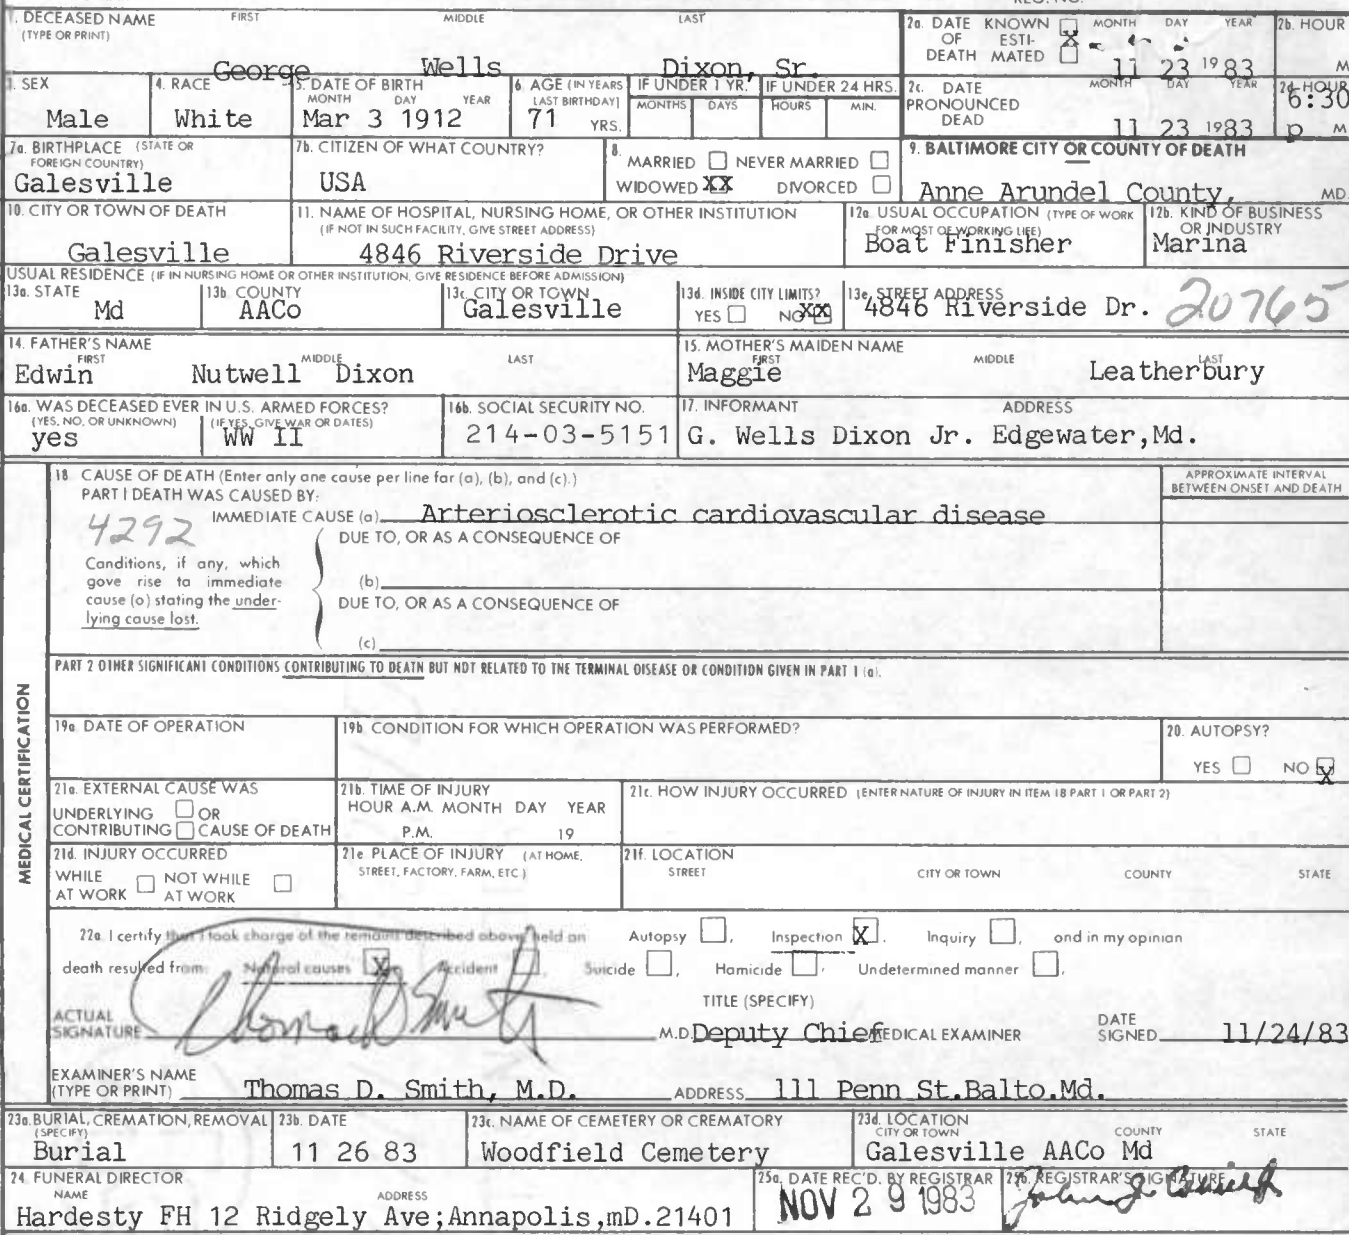 1. DECEASED NAME (TYPE OR PRINT) FIRST MIDDLE LAST
George Wells Dixon, Sr.
2a. DATE OF DEATH KNOWN ESTIMATED X MONTH DAY YEAR
11 23 1983
2b. HOUR
M
3. SEX
Male
4. RACE
White
5. DATE OF BIRTH MONTH DAY YEAR
Mar 3 1912
6. AGE (IN YEARS LAST BIRTHDAY)
71 YRS.
IF UNDER 1 YR. MONTHS DAYS
IF UNDER 24 HRS. HOURS MIN.
2c. DATE PRONOUNCED DEAD MONTH DAY YEAR
11 23 1983
2d. HOUR
6:30
p M
7a. BIRTHPLACE (STATE OR FOREIGN COUNTRY)
Galesville
7b. CITIZEN OF WHAT COUNTRY?
USA
8. MARRIED NEVER MARRIED
WIDOWED XX DIVORCED
9. BALTIMORE CITY OR COUNTY OF DEATH
Anne Arundel County, MD.
10. CITY OR TOWN OF DEATH
Galesville
11. NAME OF HOSPITAL, NURSING HOME, OR OTHER INSTITUTION
(IF NOT IN SUCH FACILITY, GIVE STREET ADDRESS)
4846 Riverside Drive
12a. USUAL OCCUPATION (TYPE OF WORK FOR MOST OF WORKING LIFE)
Boat Finisher
12b. KIND OF BUSINESS OR INDUSTRY
Marina
USUAL RESIDENCE (IF IN NURSING HOME OR OTHER INSTITUTION, GIVE RESIDENCE BEFORE ADMISSION)
13a. STATE
Md
13b. COUNTY
AACo
13c. CITY OR TOWN
Galesville
13d. INSIDE CITY LIMITS?
YES NO XX
13e. STREET ADDRESS
4846 Riverside Dr. 20765
14. FATHER'S NAME FIRST MIDDLE LAST
Edwin Nutwell Dixon
15. MOTHER'S MAIDEN NAME FIRST MIDDLE LAST
Maggie Leatherbury
16a. WAS DECEASED EVER IN U.S. ARMED FORCES?
(YES, NO, OR UNKNOWN) (IF YES, GIVE WAR OR DATES)
yes WW II
16b. SOCIAL SECURITY NO.
214-03-5151
17. INFORMANT ADDRESS
G. Wells Dixon Jr. Edgewater,Md.
MEDICAL CERTIFICATION
18 CAUSE OF DEATH (Enter only one cause per line for (a), (b), and (c).)
PART I DEATH WAS CAUSED BY:
APPROXIMATE INTERVAL
BETWEEN ONSET AND DEATH
4292
IMMEDIATE CAUSE (a) Arteriosclerotic cardiovascular disease
DUE TO, OR AS A CONSEQUENCE OF
Conditions, if any, which
gave rise to immediate
cause (a) stating the under-
lying cause last.
(b)
DUE TO, OR AS A CONSEQUENCE OF
(c)
PART 2 OTHER SIGNIFICANT CONDITIONS CONTRIBUTING TO DEATH BUT NOT RELATED TO THE TERMINAL DISEASE OR CONDITION GIVEN IN PART 1 (a).
19a. DATE OF OPERATION
19b. CONDITION FOR WHICH OPERATION WAS PERFORMED?
20. AUTOPSY?
YES NO X
21a. EXTERNAL CAUSE WAS
UNDERLYING OR
CONTRIBUTING CAUSE OF DEATH
21b. TIME OF INJURY
HOUR A.M. MONTH DAY YEAR
P.M. 19
21c. HOW INJURY OCCURRED (ENTER NATURE OF INJURY IN ITEM 18 PART 1 OR PART 2)
21d. INJURY OCCURRED
WHILE AT WORK NOT WHILE AT WORK
21e PLACE OF INJURY (AT HOME, STREET, FACTORY, FARM, ETC.)
21f. LOCATION
STREET CITY OR TOWN COUNTY STATE
22a I certify that I took charge of the remains described above, held an Autopsy, Inspection X, Inquiry, and in my opinion
death resulted from: Natural causes X Accident, Suicide, Homicide, Undetermined manner.
TITLE (SPECIFY)
ACTUAL SIGNATURE Thomas D Smith M.D. Deputy Chief MEDICAL EXAMINER DATE SIGNED 11/24/83
EXAMINER'S NAME (TYPE OR PRINT) Thomas D. Smith, M.D. ADDRESS 111 Penn St.Balto.Md.
23a. BURIAL, CREMATION, REMOVAL (SPECIFY)
Burial
23b. DATE
11 26 83
23c. NAME OF CEMETERY OR CREMATORY
Woodfield Cemetery
23d. LOCATION CITY OR TOWN COUNTY STATE
Galesville AACo Md
24. FUNERAL DIRECTOR
NAME ADDRESS
Hardesty FH 12 Ridgely Ave;Annapolis,mD.21401
25a. DATE REC'D. BY REGISTRAR
NOV 29 1983
25b. REGISTRAR'S SIGNATURE